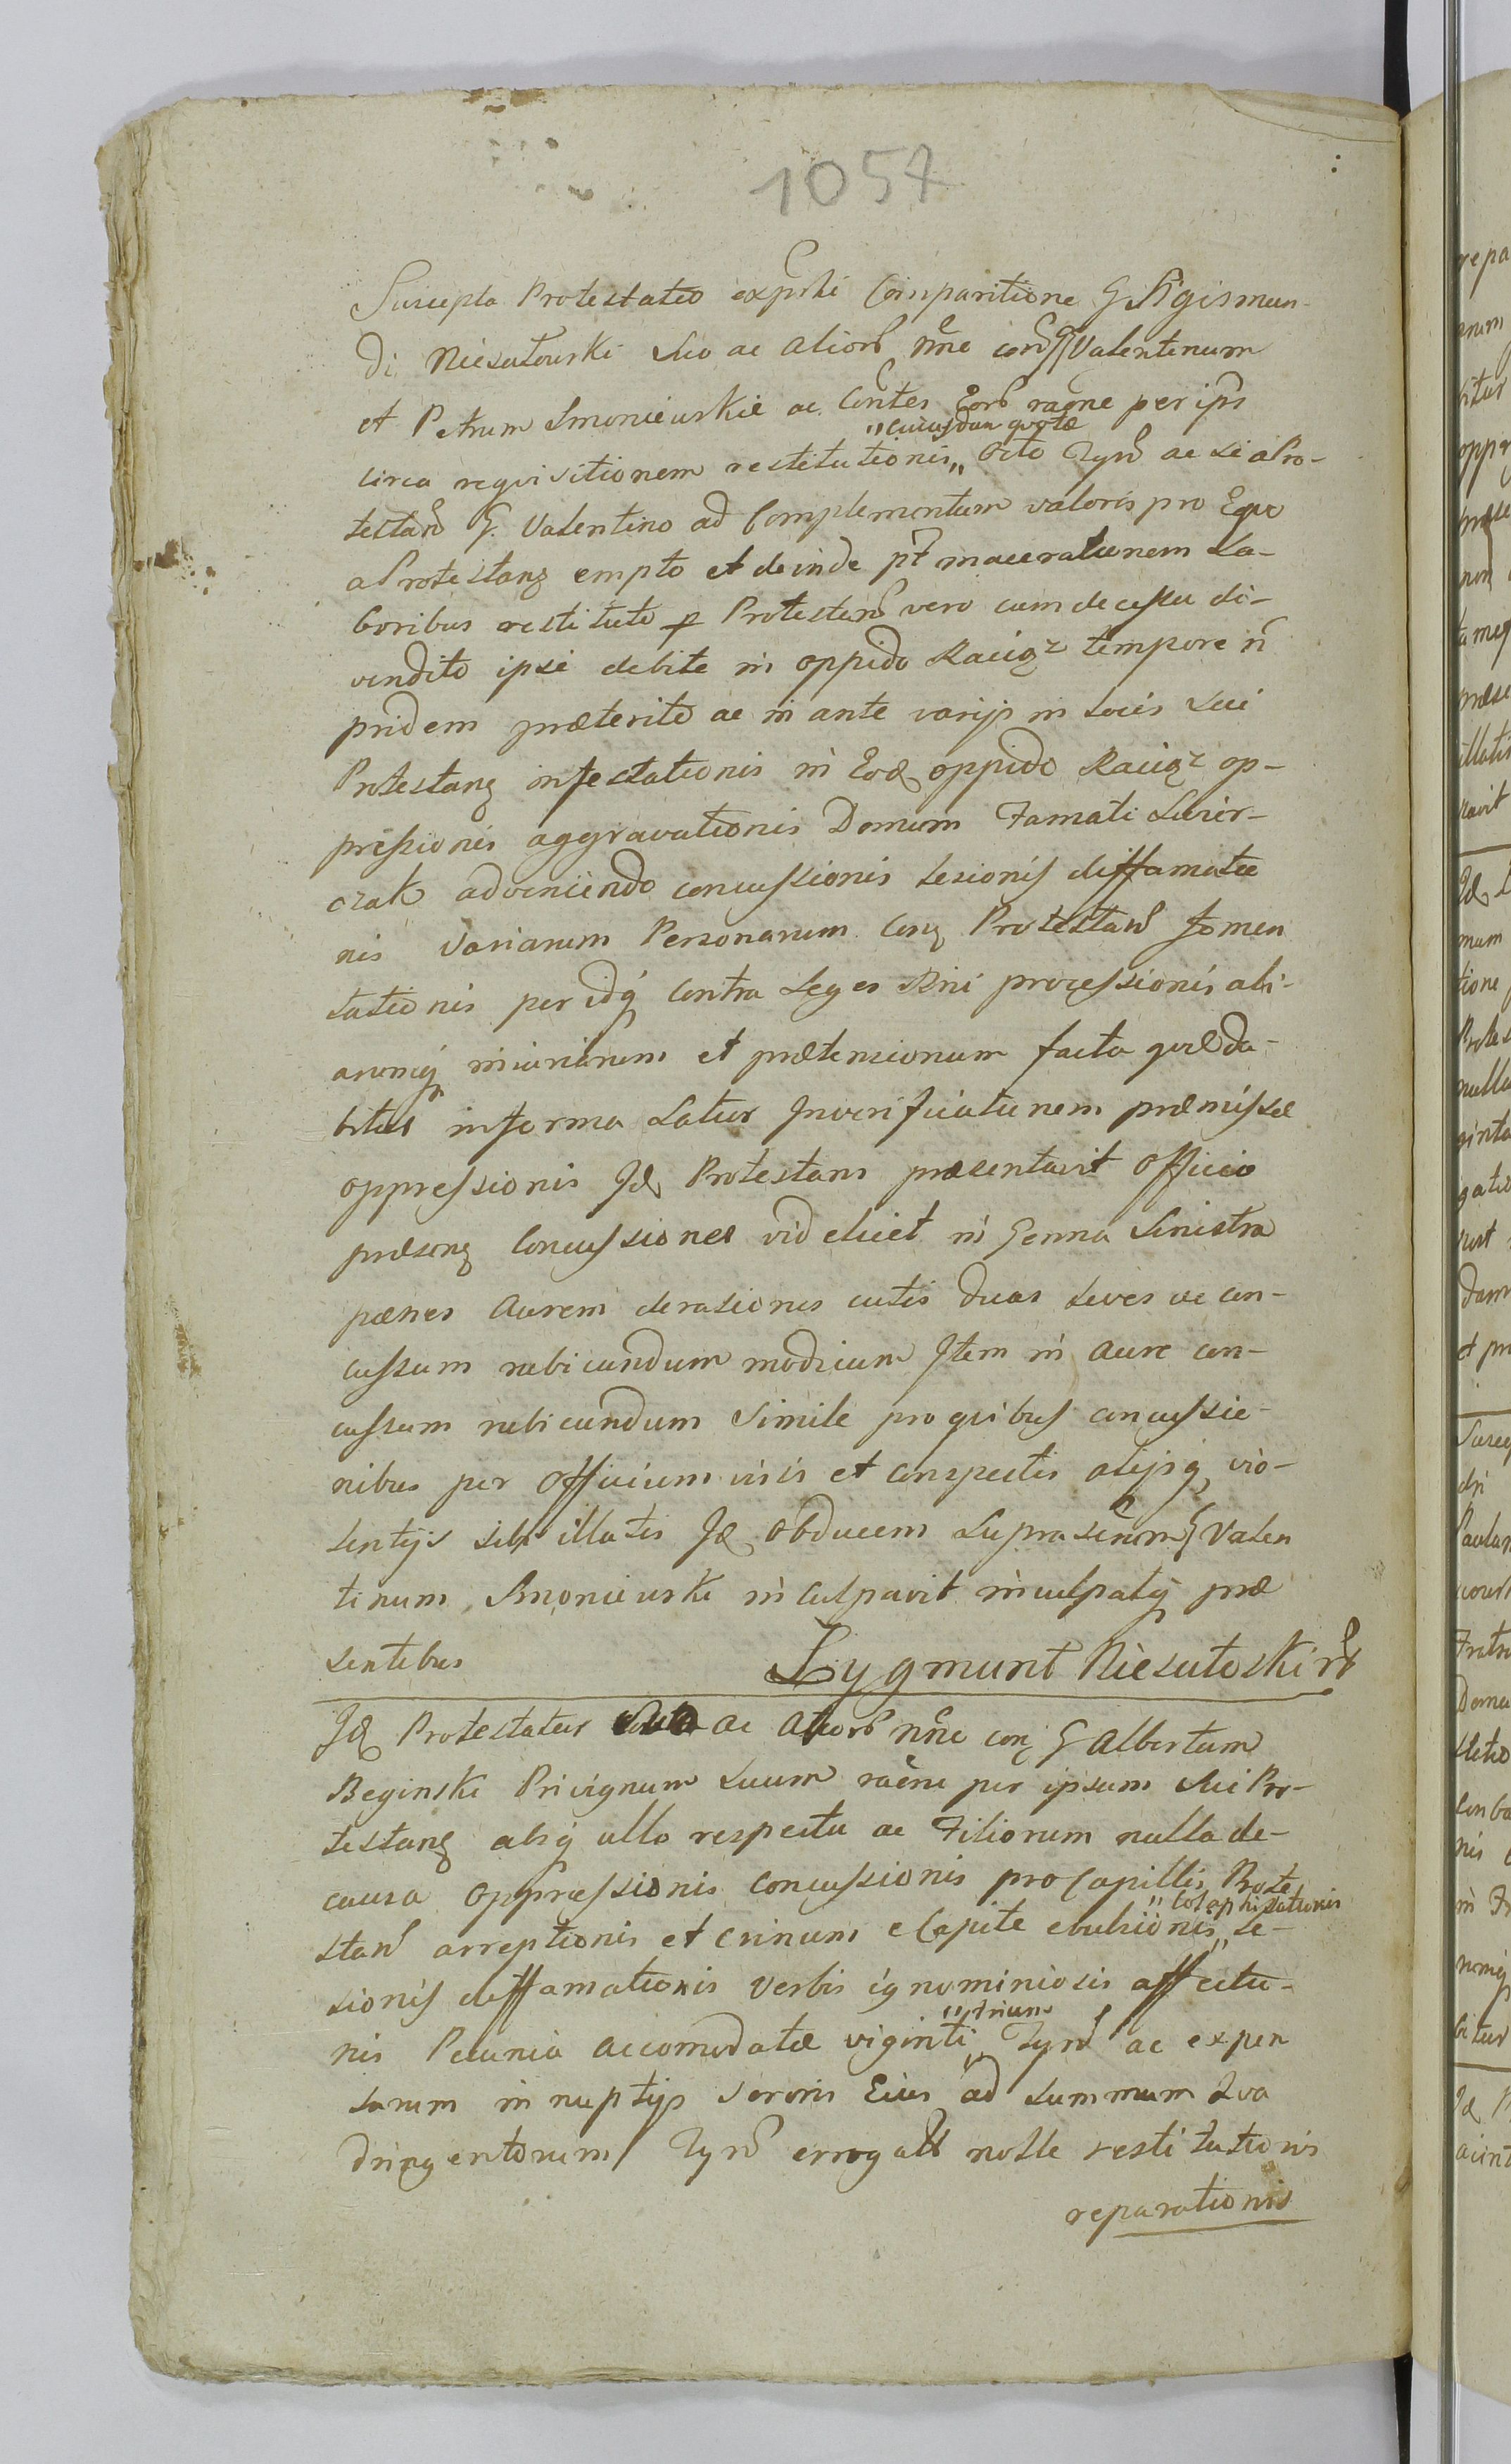 1057
Suscepta Protestatio exprsti Comparitione G Sigismun-
di Niesułowski suo ac aliorũ nñe conᷓ GG Valentinum
et Petrum Smoniewskie ac Contes Eorũ raõne per ipsᷓ
"cuiusdam quotæ
circa requisitionem restitutionis „ Octo Tynf ac se a Pro-
testanᷓ G. Valentino ad Complementum valoris pro Equo
a Protestanᷓ empto et deinde pᷓt macerationem La-
boribus restituto p Protestanᷓ vero cum decessu di-
vendito ipsi debite in oppido Raciąz tempore nᷓ
pridem præterito ac in ante varijs in locis sui
Protestanᷓ infestationis in Eod oppido Raciąz op-
pressionis aggravationis Domum Famati
czak adveniendo concussionis lesionis diffamatio
nis Variarum Personarum Conᷓ Protestanᷓ fomen
tationis per idq́ contra Leges Rni processionis ali-
arumq́ iniuriarum et prætensionum facta quæ da-
bitur in forma Latior In verificationem præmissæ
oppressionis Id Protestans præsentavit Officio
præsenᷓ Concussiones videlicet in Genna Sinistra
pænes Aurem derasiones cutis duas leves ac con-
cussum rubicundum modicum Item in Aure con-
cussum rubicundum simile pro quibus concussio-
nibus per Officium visis et conspectis alijsq́ vio-
lentijs sibi illatis Id Obducem suprascriptum G Valen
tinum Smoniewski inculpavit inculpatq́ præ
sentibus
Zygmunt Niesułoski
Id Protestatur suo ac Aliorũ nñe conᷓ G Albertum
Beginski Privignum suum raõne per ipsum sui Pro-
testanᷓ absq́ ullo respectu ac Filiorum nulla de-
causa Oppræssionis concussionis pro Capillis Prote
" Colaphisationis
stanᷓ arreptionis et crinum e Capite ebulsionis „ le-
sionis deffamationis verbis ignominiosis affectio-
" trium
nis Pecunia accomodatæ viginti „ Tynf ac expen
sarum in nuptijs Sororis Eius ad summum Qva
dringentorum Tynf errogatt nolle restitutionis
reparationis